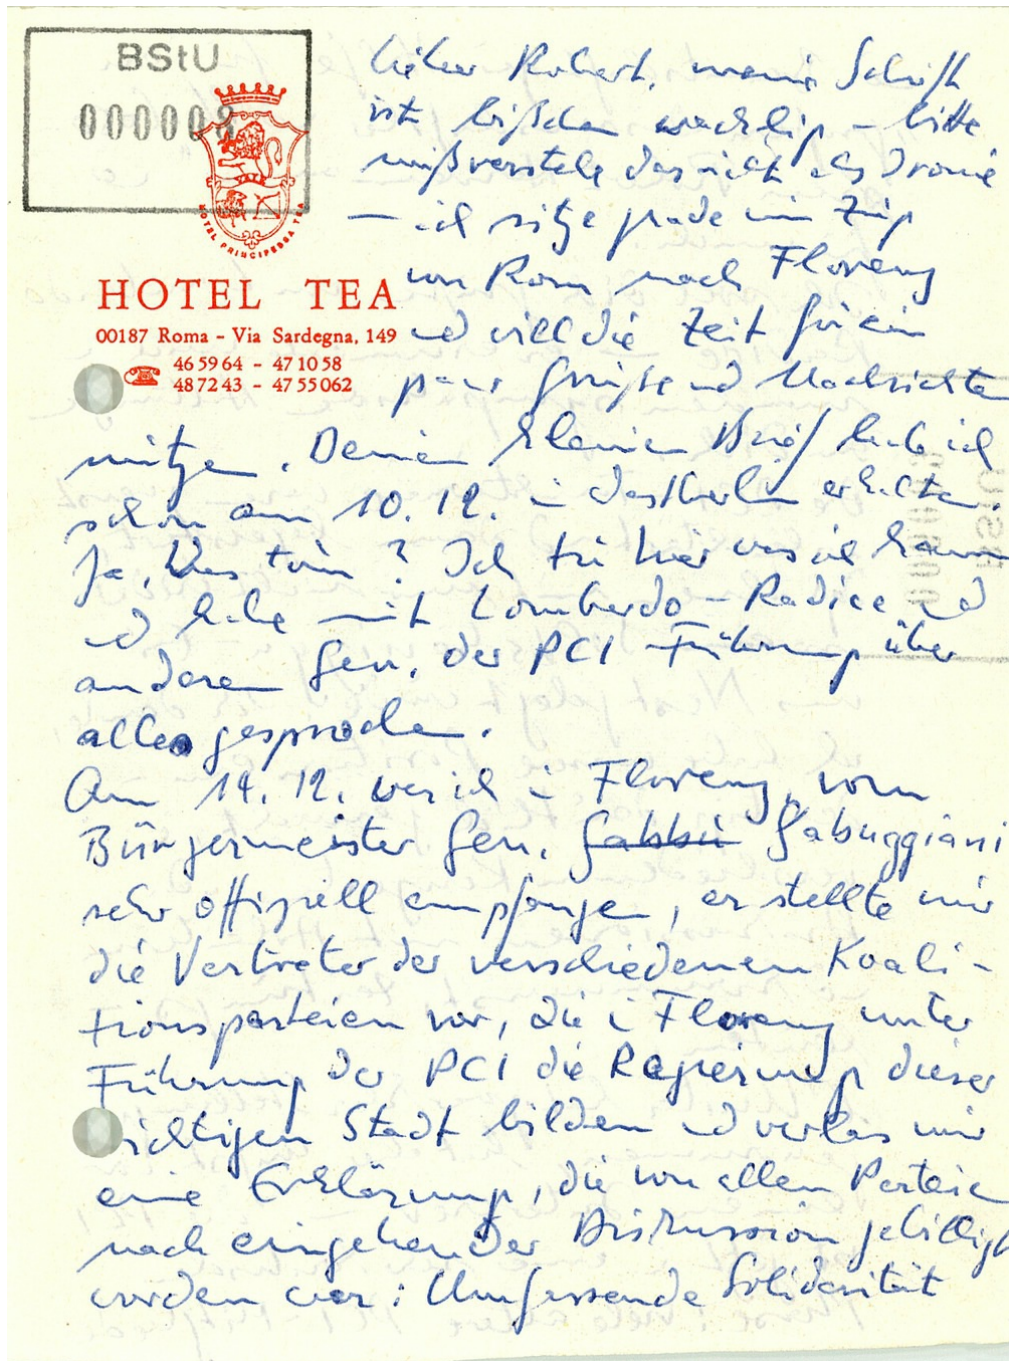 BStU
000008
HOTEL PRINCIPESSA TEA
HOTEL TEA
00187 Roma - Via Sardegna, 149
46 59 64 - 47 10 58
48 72 43 - 47 55 062
lieber Robert, meine Schrift
ist bißchen wacklig – bitte
mißverstehe das nicht als Ironie
— ich sitze grade im Zug
von Rom nach Florenz
und will die Zeit für ein
paar Grüße und Nachrichten
nützen. Deinen kleinen Brief habe ich
schon am 10. 12. in Westberlin erhalten.
Ja, Was tun? Ich tu hier was ich kann
und habe mit Lombardo-Radice und
anderen Gen. der PCI-Führung über
alles gesprochen.
Am 14. 12. war ich in Florenz, vom
Bürgermeister Gen. Gabbu Gabuggiani
sehr offiziell empfangen, er stellte mir
die Vertreter der verschiedenen Koali-
tionsparteien vor, die in Florenz unter
Führung der PCI die Regierung dieser
wichtigen Stadt bilden und verlas mir
eine Erklärung, die von allen Parteien
nach eingehender Diskussion gebilligt
worden war: Umfassende Solidarität